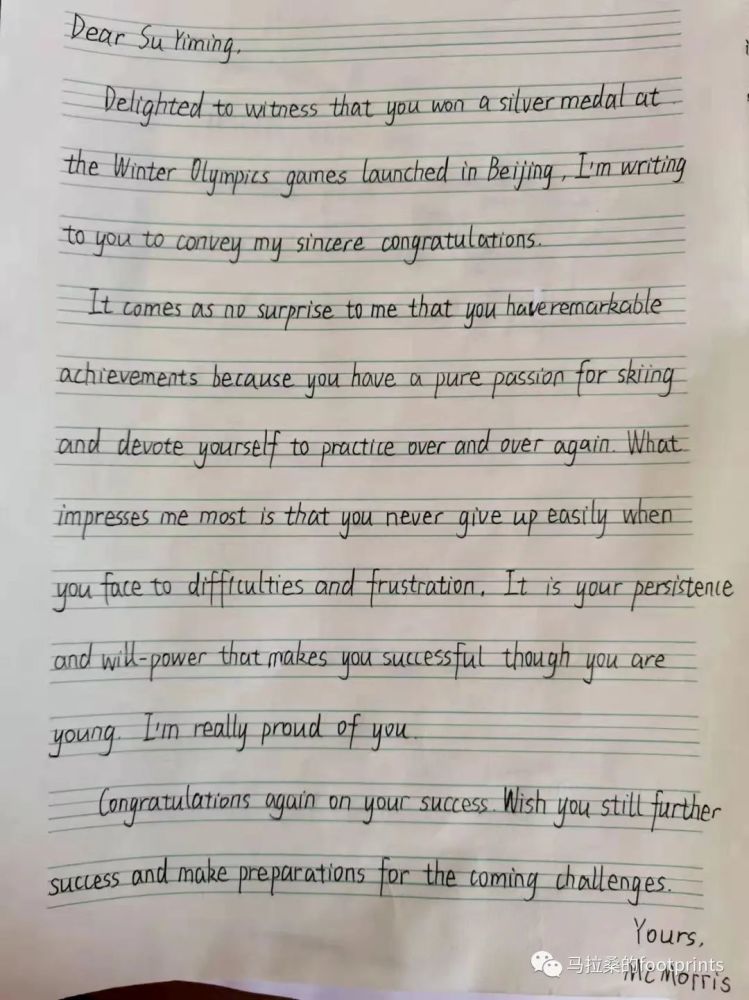 Dear Su Yiming,
Delighted to witness that you won a silver medal at
the Winter Olympics games launched in Beijing, I'm writing
to you to convey my sincere congratulations.
It comes as no surprise to me that you have remarkable
achievements because you have a pure passion for skiing
and devote yourself to practice over and over again. What
impresses me most is that you never give up easily when
you face to difficulties and frustration. It is your persistence
and will-power that makes you successful though you are
young. I'm really proud of you.
Congratulations again on your success. Wish you still further
success and make preparations for the coming challenges.
Yours,
McMorris
马拉桑的footprints